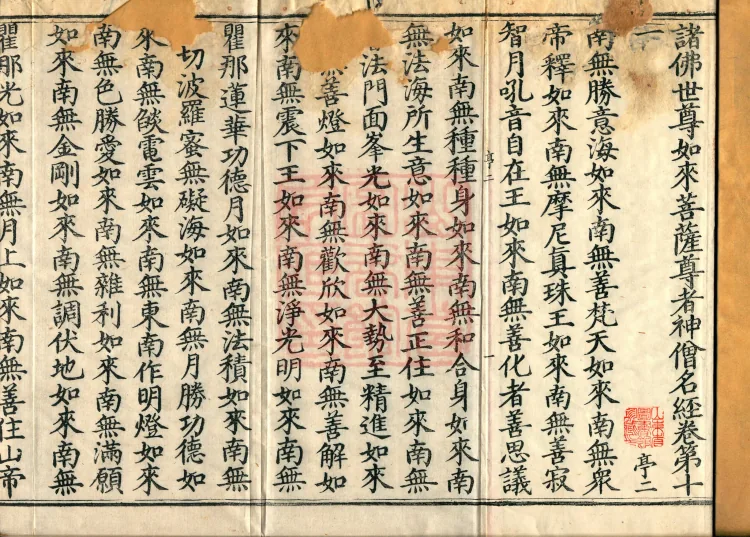 諸佛世尊如來菩薩尊者神僧名經卷第十
一
亭二
南無勝意海如來南無善梵天如來南無眾
帝釋如來南無摩尼真珠王如來南無善寂
智月吼音自在王如來南無善化者善思議
亭二
如來南無種種身如來南無和合身如來南
無法海所生意如來南無善正住如來南無
法門面峯光如來南無大勢至精進如來
無善燈如來南無歡欣如來南無善解如
來南無震下王如來南無淨光明如來南無
瞿那蓮華功德月如來南無法積如來南無
切波羅蜜無礙海如來南無月勝功德如
來南無燄電雲如來南無東南作明燈如來
南無色勝愛如來南無雜利如來南無滿願
如來南無金剛如來南無調伏地如來南無
瞿那光如來南無月上如來南無善住山帝